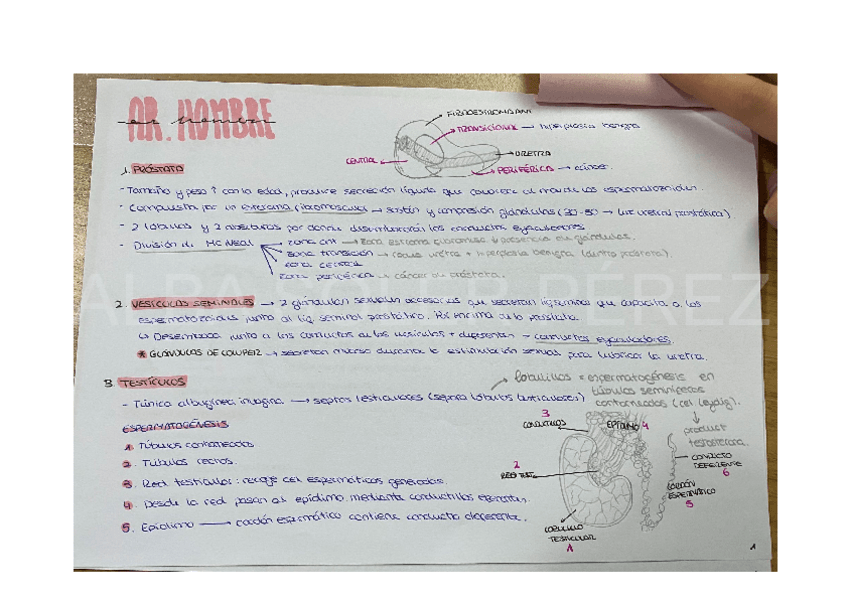 AR. HOMBRE
FIBROESTROMA ANT
TRANSICIONAL → hiperplasia benigna
CENTRAL
URETRA
PERIFÉRICA → cáncer.
1. PRÓSTATA
- Tamaño y peso ↑ con la edad, produce secreción líquida que confiere al medio de los espermatozoides.
- Compuesta por un estroma fibromuscular → sostén y compresión glándulas (30-50 → luz uretral prostática)
- 2 lóbulos y 2 aberturas por donde desembocan los conductos eyaculadores.
- División de MC NEAL
zona ant → zona estroma glandular ↓ presencia de glándulas.
zona transición → rodea uretra + hiperplasia benigna (dentro próstata).
zona central
zona periférica → cáncer de próstata.
ALBA PÉREZ
2. VESÍCULAS SEMINALES → 2 glándulas sexuales accesorias que secretan líq seminal que capacita a los
espermatozoides junto al líq. seminal prostático. Por encima de la próstata.
↳ Desembocada junto a los conductos de las vesículas + deferentes → conductos eyaculadores.
* GLÁNDULAS DE COWPER → secretan moco durante la estimulación sexual para lubricar la uretra.
3. TESTÍCULOS
lobulillos = espermatogénesis en
túbulos seminíferos
contorneados (cel leydig).
- Túnica albugínea invagina → septos testiculares (separa lóbulos testiculares)
product
testosterona.
ESPERMATOGÉNESIS
1. Túbulos contorneados
2. Túbulos rectos.
3. Red testicular: recoge cel espermáticas generadas.
4. Desde la red pasan al epídimo mediante conductillos eferentes.
5. Epídimo → cordón espermático contiene conducto deferente.
3
CONDUCTILLOS
EPÍDIMO 4
2
RED TEST.
CONDUCTO
DEFERENTE
6
CORDÓN
ESPERMÁTICO
5
LOBULILLO
TESTICULAR
1
1